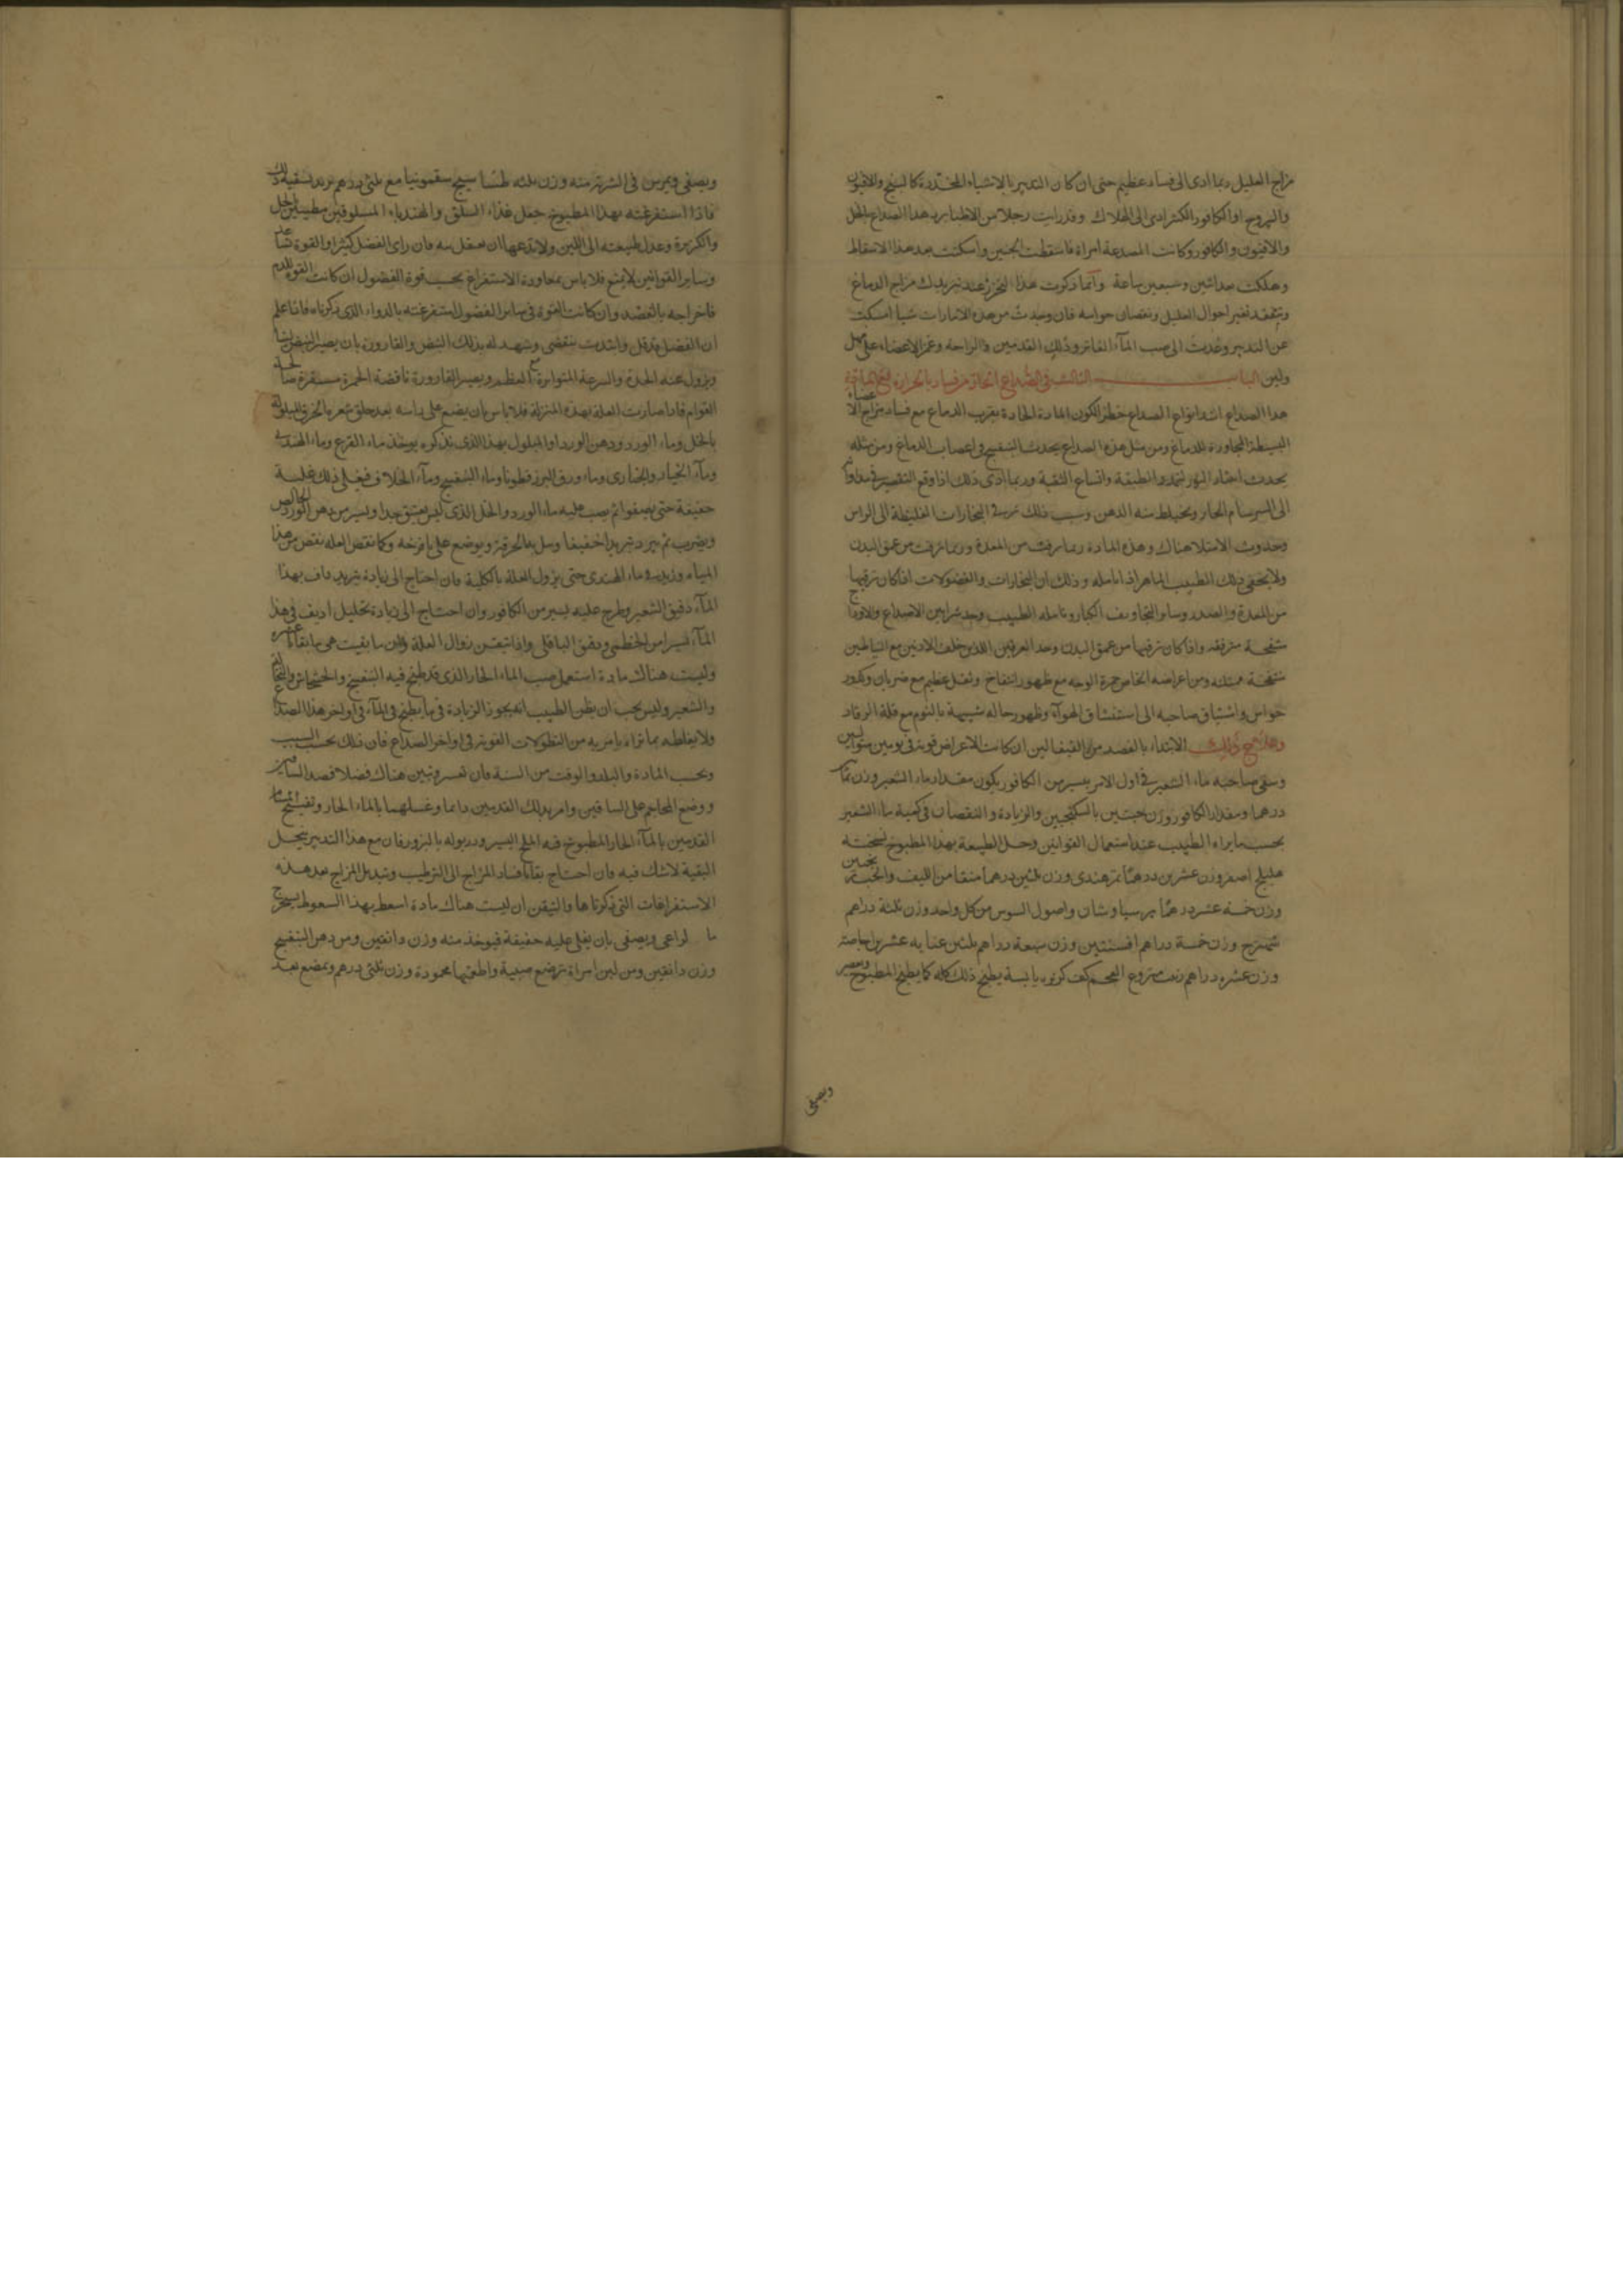 مزاج العليل ربما ادى الى فساد عظيم حتى ان كان التدبير بالاشياء المخدرة كالبنج والافيون
واليبروح او الكافور الكثير ادى الى الهلاك وقد رايت رجلا من الاطباء بهذا الصداع بالخل
والافيون والكافور وكانت المصدعة امراة فاسقطت الجنين واسكتت بعد هذا الاسقاط
وهلكت بعد اثنين وسبعين ساعة وانما ذكرت هذا لتحرز عند تبريدك مزاج الدماغ
وتتفقد تغير احوال العليل ونقصان حواسه فان وجدت من هذه الاشارات شيا امسكت
عن التدبير وعدت الى صب الماء الفاتر ودلك القدمين والراحة وغمز الاعضاء على مهل
ولين الباب الثالث في الصداع الحادث من فساد بالحرارة مع المادة
هذا الصداع اشد انواع الصداع خطرا لكون المادة الحادة بقرب الدماغ مع فساد مزاج الاعضاء
البسيطة المجاورة للدماغ ومن مثل هذه الصداع يحدث التشنج في اعصاب الدماغ ومن مثله
يحدث انتشار النور لتمدد الطبقة واتساع الثقبة وربما ادى ذلك اذا وقع التقصير في مداواته
الى السرسام الحار ويختلط منه الذهن وسبب ذلك ترقي البخارات الغليظة الى الراس
وحدوث الامتلا هناك وهذه المادة ربما ترقت من المعدة وربما ترقت من عمق البدن
ولا يخفى ذلك الطبيب الماهر اذا تامله وذلك ان البخارات والفضولات اذا كان ترقيها
من المعدة والصدر وساير التجاويف الكبار وتامله الطبيب وجد شرايين الاصداغ والاوداج
منتفخة مترفعة واذا كان ترقيها من عمق البدن وجد العرقين اللذين خلف الاذنين مع الشاطين
منتفخة ممتلئه ومن اعراضه الخاص حمرة الوجه مع ظهور انتفاخ وثقل عظيم مع ضربان وتكدر
حواس واشتياق صاحبه الى استنشاق الهواء وظهور حاله شبيهة بالنوم مع قلة الرقاد
وعلاج ذلك الابتداء بالفصد من القيفالين ان كانت الاعراض قوية في يومين متواليين
وسقي صاحبه ماء الشعير في اول الامر بيسير من الكافور يكون مقدار ماء الشعير وزن
درهما ومقدار الكافور وزن حبتين بالسكنجبين والزيادة والنقصان في كمية ماء الشعير
بحسب ما يراه الطبيب عند استعمال القوانين وحل الطبيعة بهذا المطبوخ نسخته
هليلج اصفر وزن عشرين درهما تمر هندي وزن ثلثين درهما منقا من الليف والحب
وزن خمسة عشر درهما برسياوشان واصول السوس من كل واحد وزن ثلثة دراهم
شهترج وزن خمسة دراهم افسنتين وزن سبعة دراهم ثلثين عنابه عشرين اجاصة
وزن عشرة دراهم زبيب منزوع العجم كف كزبره يابسة يطبخ ذلك كله كما يطبخ المطبوخ
ويصفى
ويصفى ويمرس في الشربة منه وزن ثلثه سقمونيا مع ثلثي درهم تربد تسقيه ذلك
فاذا استفرغته بهذا المطبوخ جعل غذاء السلق والهندباء المسلوقين مطيبين بالخل
والكزبرة وعدل طبيعته الى اللين ولا تدعها ان تعقل به فان راى الفضل كثيرا والقوة
وساير القوانين لا يمنع فلا باس بمعاودة الاستفراغ بحسب قوة الفضول ان كانت القوة للدم
فاخراجه بالفصد وان كانت القوة في ساير الفضول استفرغته بالدواء الذي ذكرناه فاذا علم
ان الفضل قد قل وابتدت ينقضي وشهد له بذلك النبض والقارورة بان يصير النبض لينا
ويزول عنه الحدة والسرعة المتواترة مع العظم ويصير القارورة ناقصة الحمرة
القوام فاذا صارت العلة بهذه المنزلة فلا باس بان يضع على راسه بعد حلق شعره الخرق المبلولة
بالخل وماء الورد ودهن الورد او المبلول بهذا الذي نذكره يوخذ ماء القرع وماء الهندبا
وماء الخيار والخبازى وماء ورق البزرقطونا وماء البنفسج وماء الخلاف فيغلى ذلك غلية
خفيفة حتى يصفوا ثم يصب عليه ماء الورد والخل الذي ليس بعتيق جدا ويسير من دهن الورد الخالص
ويضرب ثم يبرد تبريدا خفيفا وبل به الخرقة ويوضع على يافوخه وكلما نقص العله نقص من هذا
المياه وزيد في ماء الهندبى حتى يزول العلة بالكلية فان احتاج الى زيادة تبريد داف بهذا
الماء دقيق الشعير وطرح عليه يسير من الكافور وان احتاج الى زيادة تحليل اديف في هذا
الماء يسير من الخطمى ودقيق الباقلى واذا تيقن زوال العلة وان ما بقيت هي بقايا
وليست هناك مادة استعمل صب الماء الحار الذي قد طبخ فيه البنفسج والخشخاش
والشعير وليس يجب ان يظن الطبيب انه يجوز الزيادة في ما يطبخ في الماء في اواخر هذا الصداع
ولا يغلطه بما نراه يامر به من النطولات القوية في اواخر الصداع فان ذلك بحسب السبب
وبحسب المادة والبلد والوقت من السنة فان تعسر وتبين هناك فضلا فصد الصافن
ووضع المحاجم على الساقين وامر بدلك القدمين دايما وغسلهما بالماء الحار وتفتيح المسام
القدمين بالماء الحار المطبوخ فيه الملح اليسير ودر بوله بالبزور فان مع هذا التدبير ينحل
البقية لاشك فيه فان احتاج بقايا فساد المزاج الى الترطيب وتبديل المزاج بعد هذه
الاستفراغات التي ذكرناها والتيقن ان ليست هناك مادة اسعط بهذا السعوط يستخرج
ما الراعي ويصفى بان يغلى غليه خفيفة فيوخذ منه وزن دانقين ومن دهن البنفسج
وزن دانقين ومن لبن امراة ترضع صبية واطعمتها محمودة وزن ثلثي درهم ويمضغ بعد